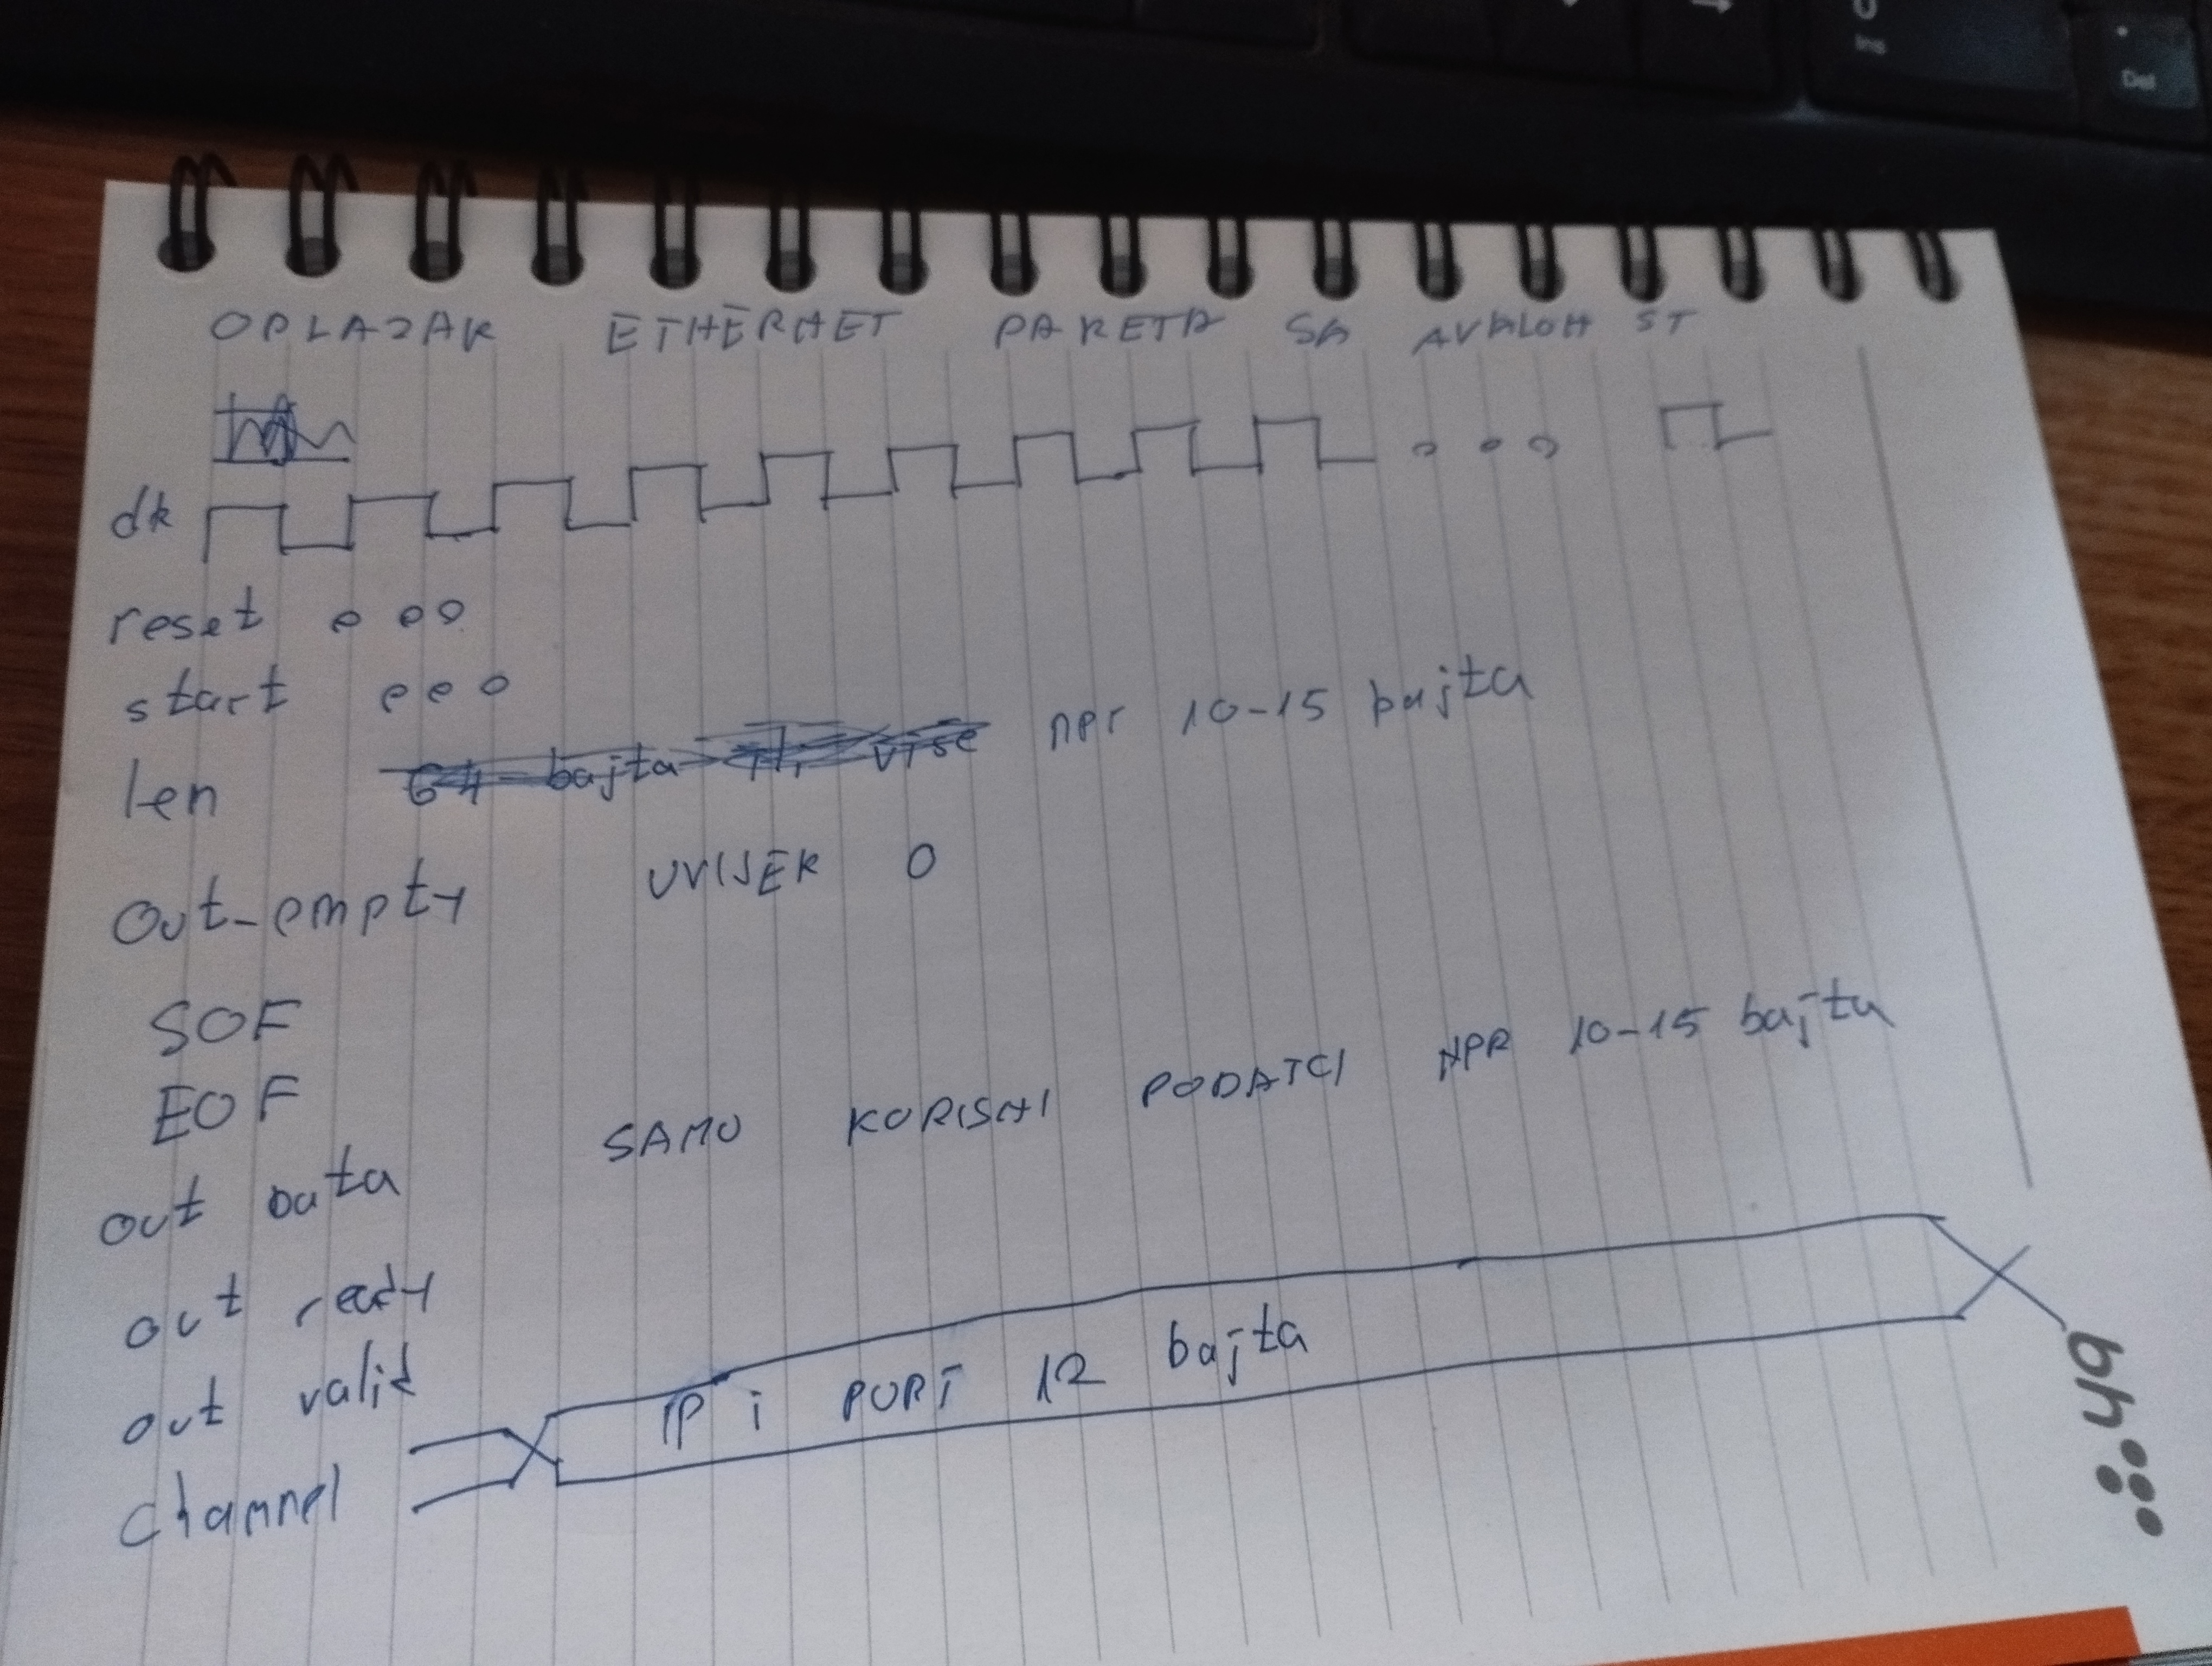 ODLAZAK ETHERNET PAKETA SA AVALON ST
clk
reset o o o
start o o o
len 64 bajta ili više npr 10-15 bajta
Out_empty UVIJEK 0
SOF
EOF
out data SAMO KORISNI PODATCI NPR 10-15 bajta
out ready
out valid
channel IP i PORT 12 bajta
hq
Ins
Del